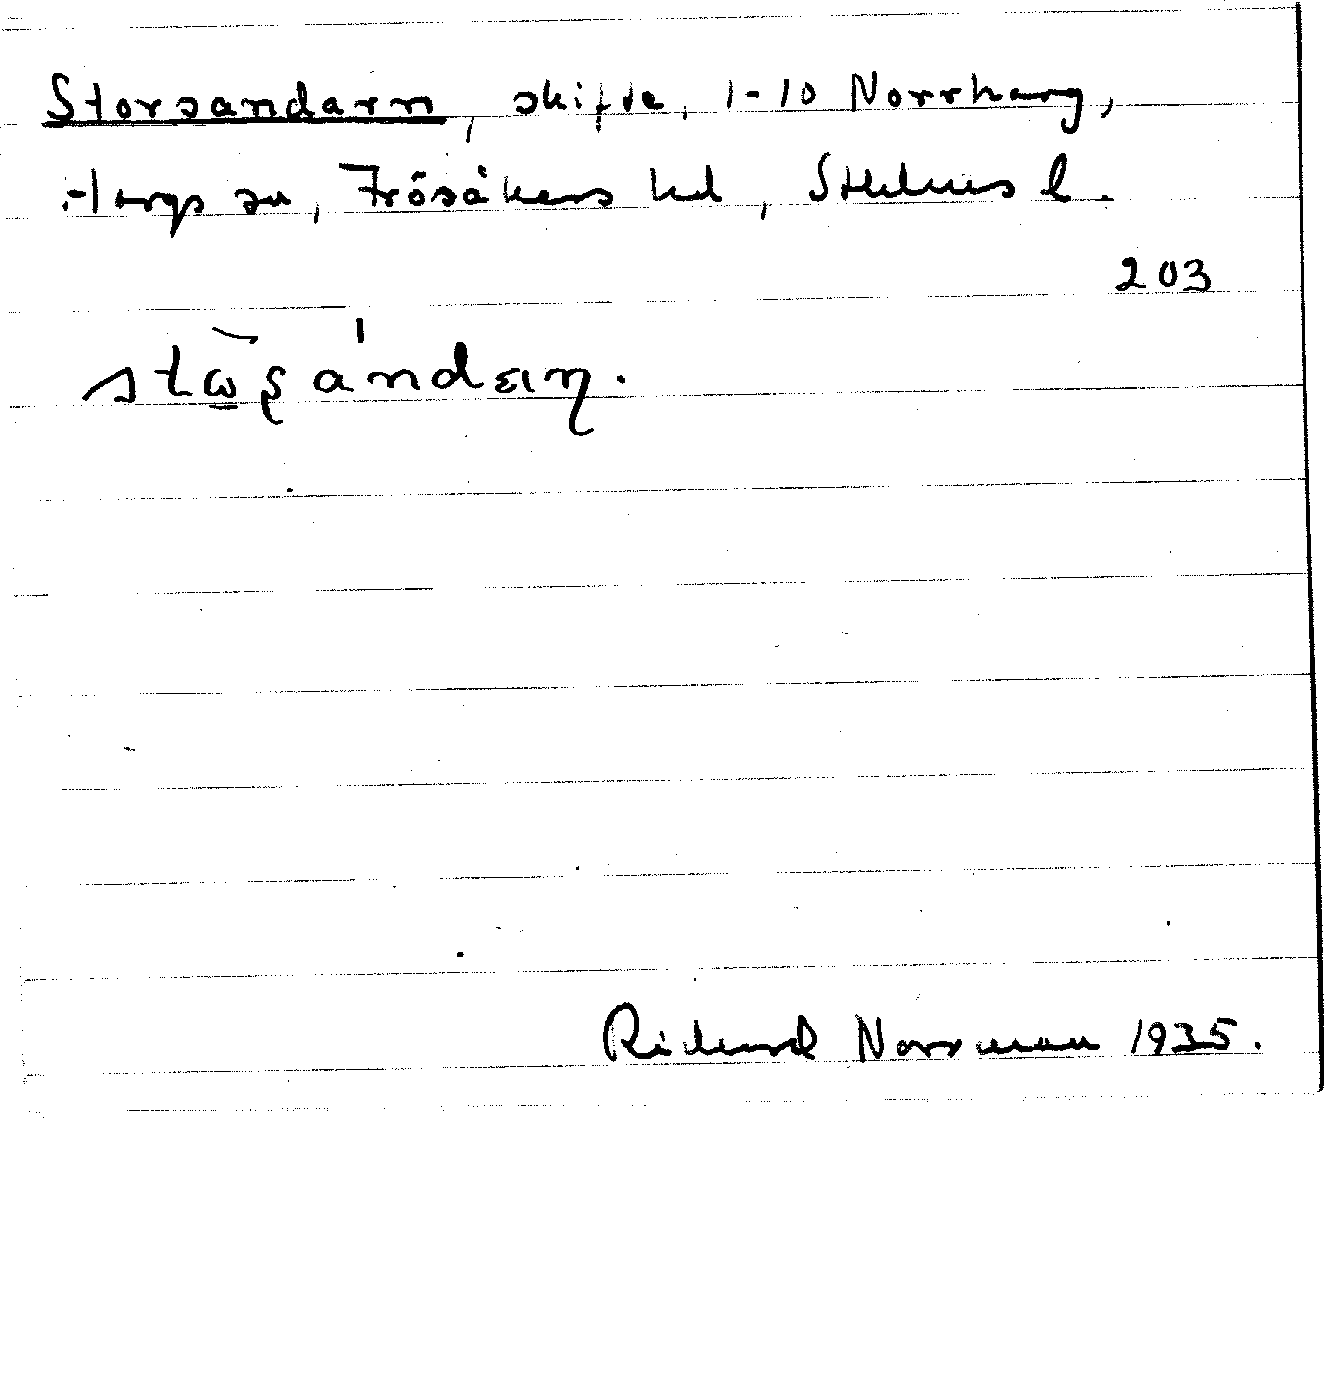 Storsandarn, skifte, 1-10 Norrharg,
Hargs sn, Frösåkers hd, Sthlms l.
203
Richard Norrman 1935.